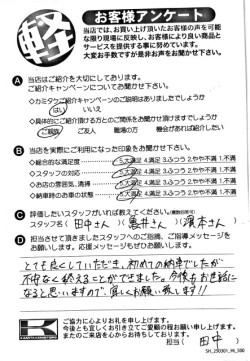 軽
お客様アンケート
当店では、お買い上げ頂いたお客様の声を可能
な限り現場に反映し、お客様により良い商品と
サービスを提供する事に努めています。
大変お手数ですが是非お声をお聞かせ下さい。
A 当店はご紹介を大切にしております。
ご紹介キャンペーンについてお聞かせ下さい。
◇カミタケご紹介キャンペーンのご説明はありましたでしょうか
はい いいえ
◇具体的にご紹介頂ける方とのご関係をお聞かせ頂けますでしょうか
ご親族 ご友人 職場の方 機会があれば紹介したい
B 当店を実際にご利用になった印象をお聞かせ下さい。
◇総合的な満足度 5.大満足 4.満足 3.ふつう 2.やや不満 1.不満
◇スタッフの対応 5.大満足 4.満足 3.ふつう 2.やや不満 1.不満
◇お店の雰囲気、清掃 5.大満足 4.満足 3.ふつう 2.やや不満 1.不満
◇納車時のお車の状態 5.大満足 4.満足 3.ふつう 2.やや不満 1.不満
C 評価したいスタッフがいれば教えてください。(複数回答可)
スタッフ名( 田中さん )( 亀井さん )( 濱本さん )
D 担当させて頂きましたスタッフへのご指摘、ご指導メッセージを
お願いします。応援メッセージもぜひお願いします。
とても良くしていただき、初めての納車でしたが
不安なく終えることができました。今後もお世話に
なると思いますので、宜しくお願い致します!!
ご協力に心よりお礼を申し上げます。
今後とも宜しくお引き立てご愛顧の程お願い申し上げます。
またのご来店を心からお待ちしております。
担当( 田中
SH_250301_HI_500